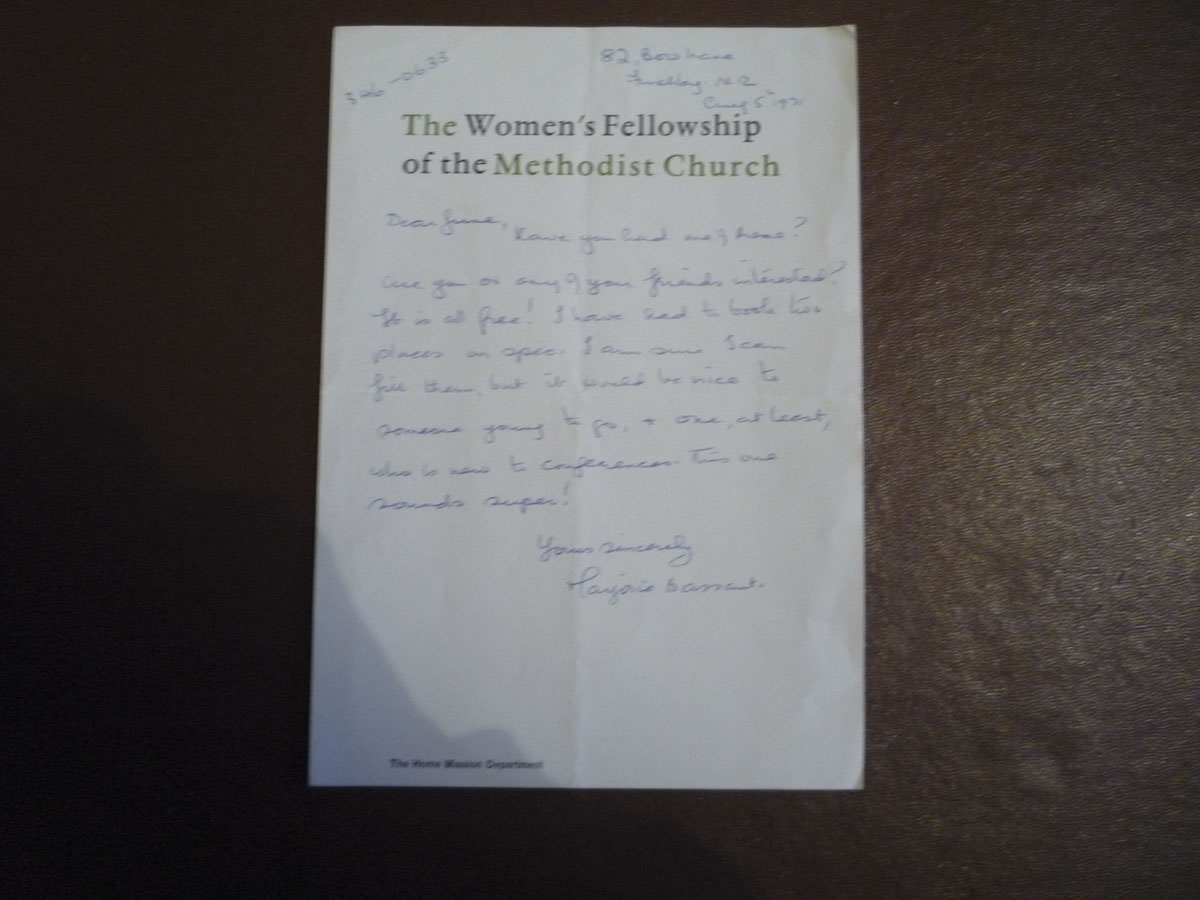 346-0633
82, Bow Lane
Finchley N.2
Aug 5 1971
The Women's Fellowship
of the Methodist Church
Dear June,
Have you had one of these?
Are you or any of your friends interested?
It is all free! I have had to book
places on spec. I am sure I can
fill them, but it would be nice to
someone young to go, & one, at least,
who is new to conferences. This one
sounds super!
Yours sincerely
Marjorie
The Home Mission Department